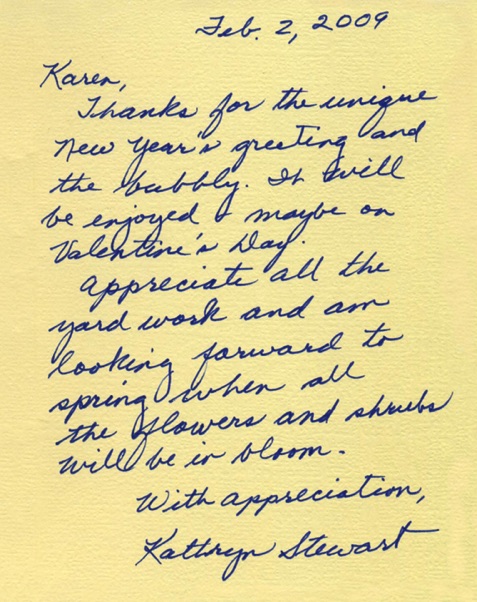 Feb. 2, 2009
Karen,
Thanks for the unique
New Year's greeting and
the bubbly. It will
be enjoyed maybe on
Valentine's Day.
Appreciate all the
yard work and am
looking forward to
spring when all
the flowers and shrubs
will be in bloom.
With appreciation,
Kathryn Stewart